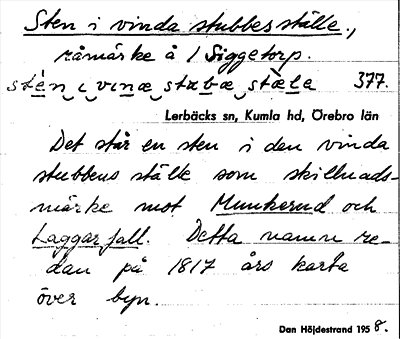 Sten i vinda stubbes ställe.,
råmärke å 1 Siggetorp.
stèn i vinæ stubæ stæ̀le 377.
Lerbäcks sn, Kumla hd, Örebro län
Det står en sten i den vinda
stubbens ställe som skillnads-
märke mot Munkerud och
Laggarfall. Detta namn re-
dan på 1817 års karta
över byn.
Dan Höjdestrand 1958.